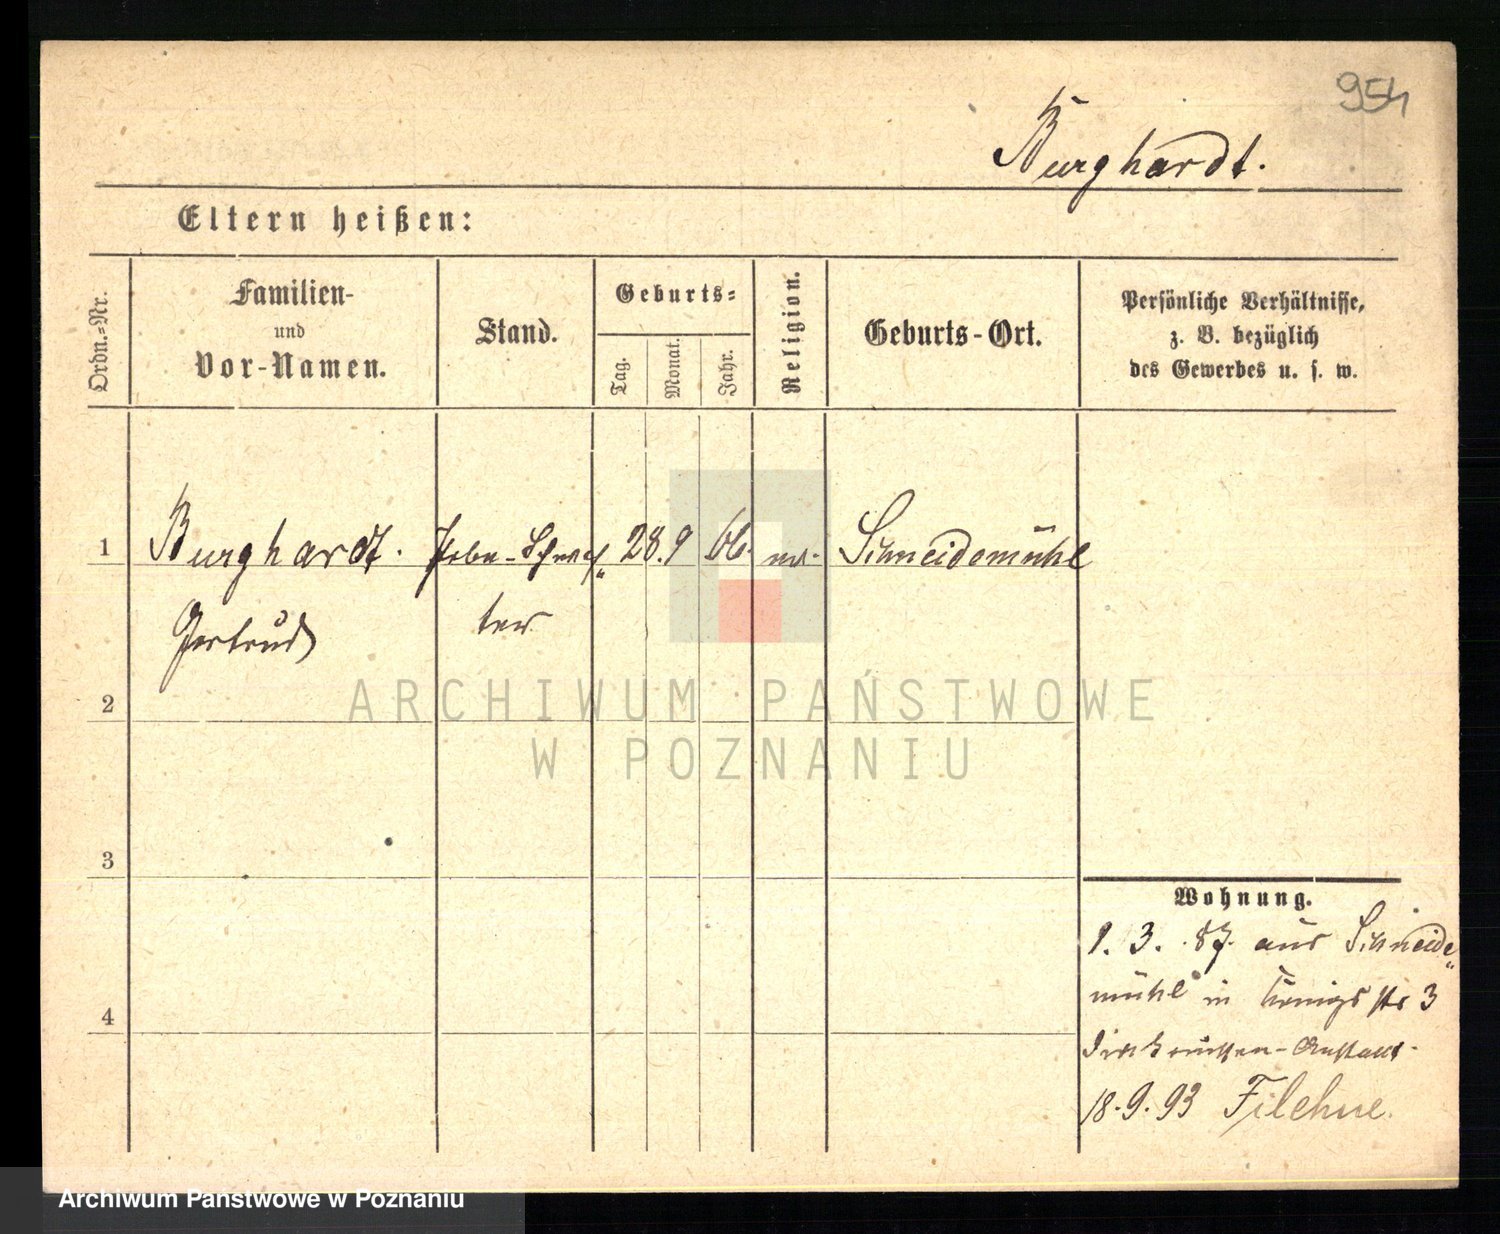 954
Burghardt.
Eltern heißen:
Ordn.-Nr.
Familien-
und
Vor-Namen.
Stand.
Geburts-
Tag.
Monat.
Jahr.
Religion.
Geburts-Ort.
Persönliche Verhältnisse,
z. B. bezüglich
des Gewerbes u. s. w.
1 Burghardt. Probe-Schwes- 28. 9 66. ev. Schneidemühl
Gertrud ter
2
3
4
Wohnung.
1. 3. 87. aus Schneide-
mühl in Königsstr 3
Diakonissen-Anstalt
18. 9. 93 Filehne.
ARCHIWUM PAŃSTWOWE
W POZNANIU
Archiwum Państwowe w Poznaniu